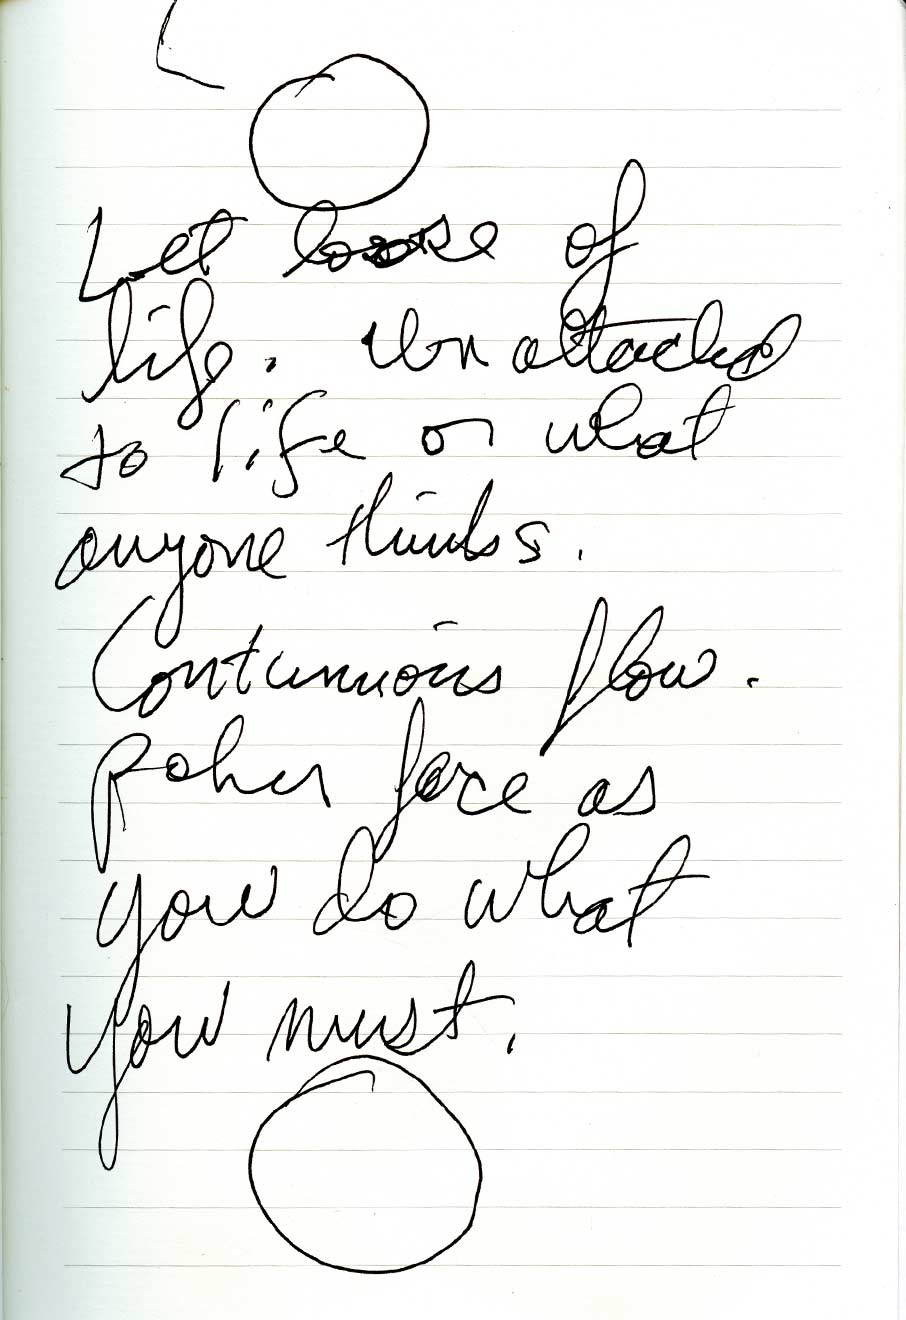 Let loose of
life. Unattached
to life or what
anyone thinks.
Continuous flow.
poker face as
you do what
you must.